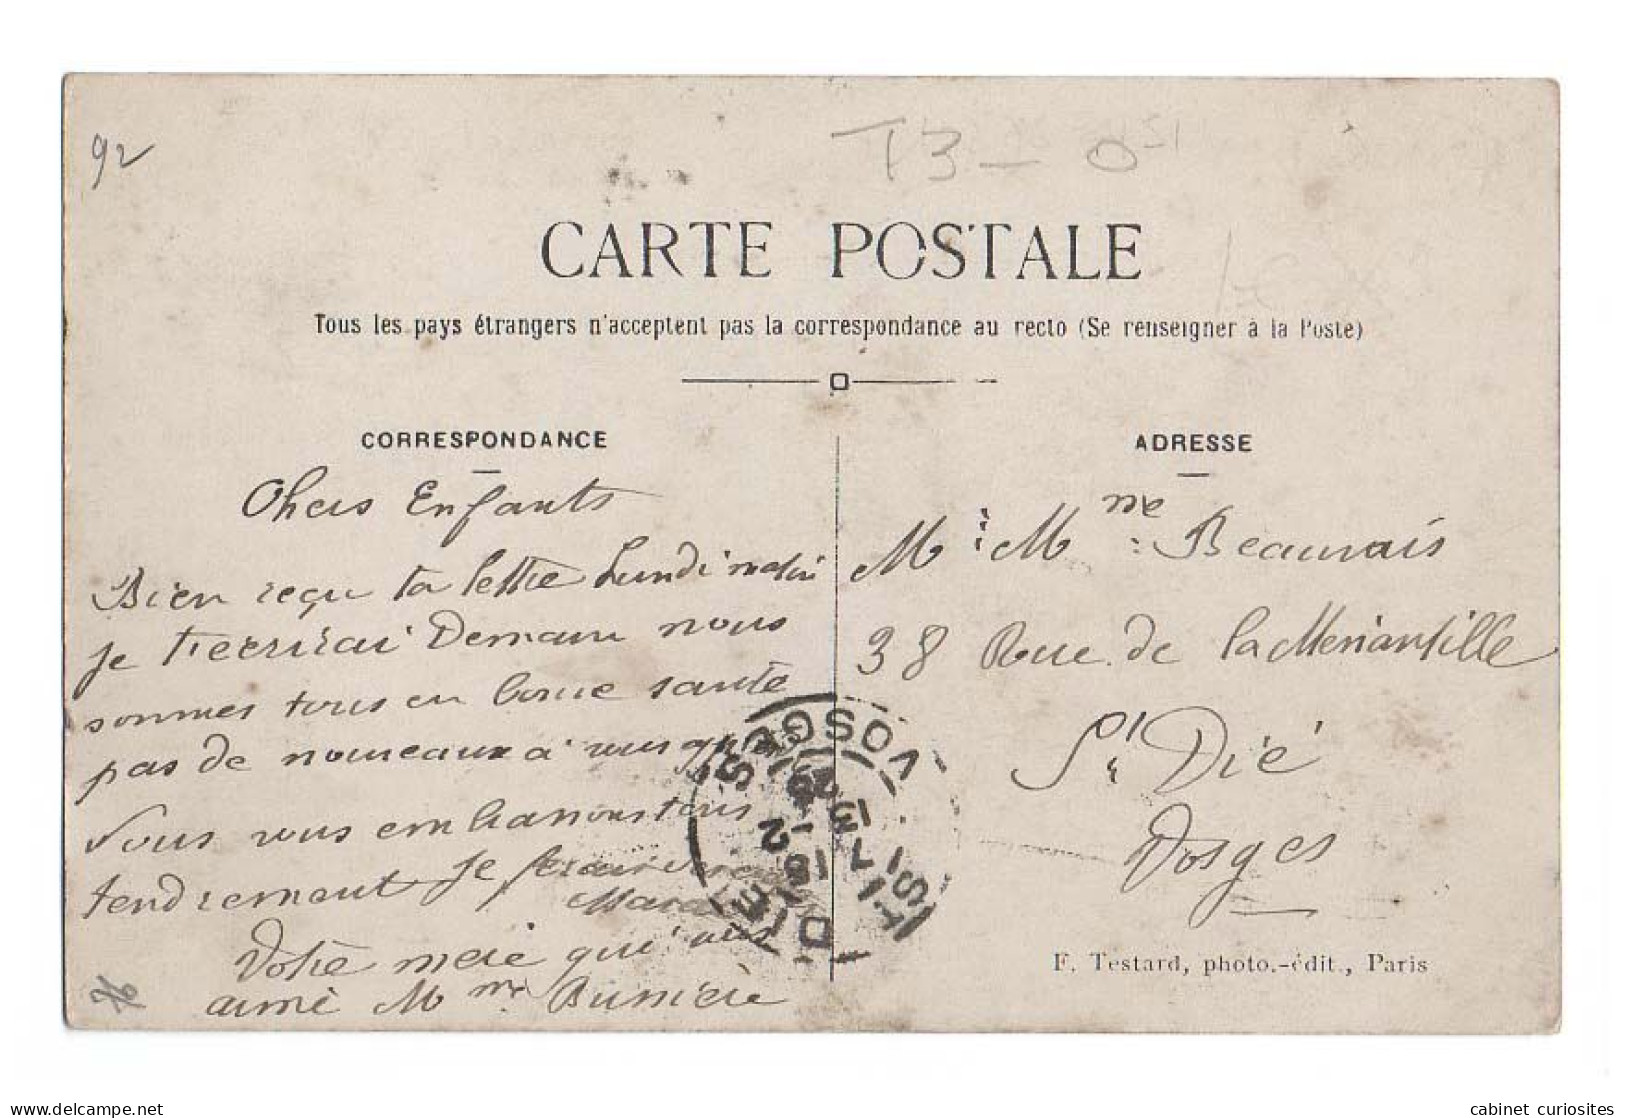 92
T3 - 0
CARTE POSTALE
Tous les pays étrangers n'acceptent pas la correspondance au recto (Se renseigner à la Poste)
CORRESPONDANCE
Chers Enfants
Bien reçu ta lettre Lundi matin
je t'ecrirai Demain nous
sommes tous en bonne santé
pas de nouveaux a vous
Nous vous embrassons tous
tendrement je
Votre mere qui vous
aime Mme
ADRESSE
M: Mme: Beauvais
38 Rue de la Meriantille
St Dié
Vosges
ST DIE
VOSGES
F. Testard, photo.-édit., Paris
cabinet curiosites
www.delcampe.net